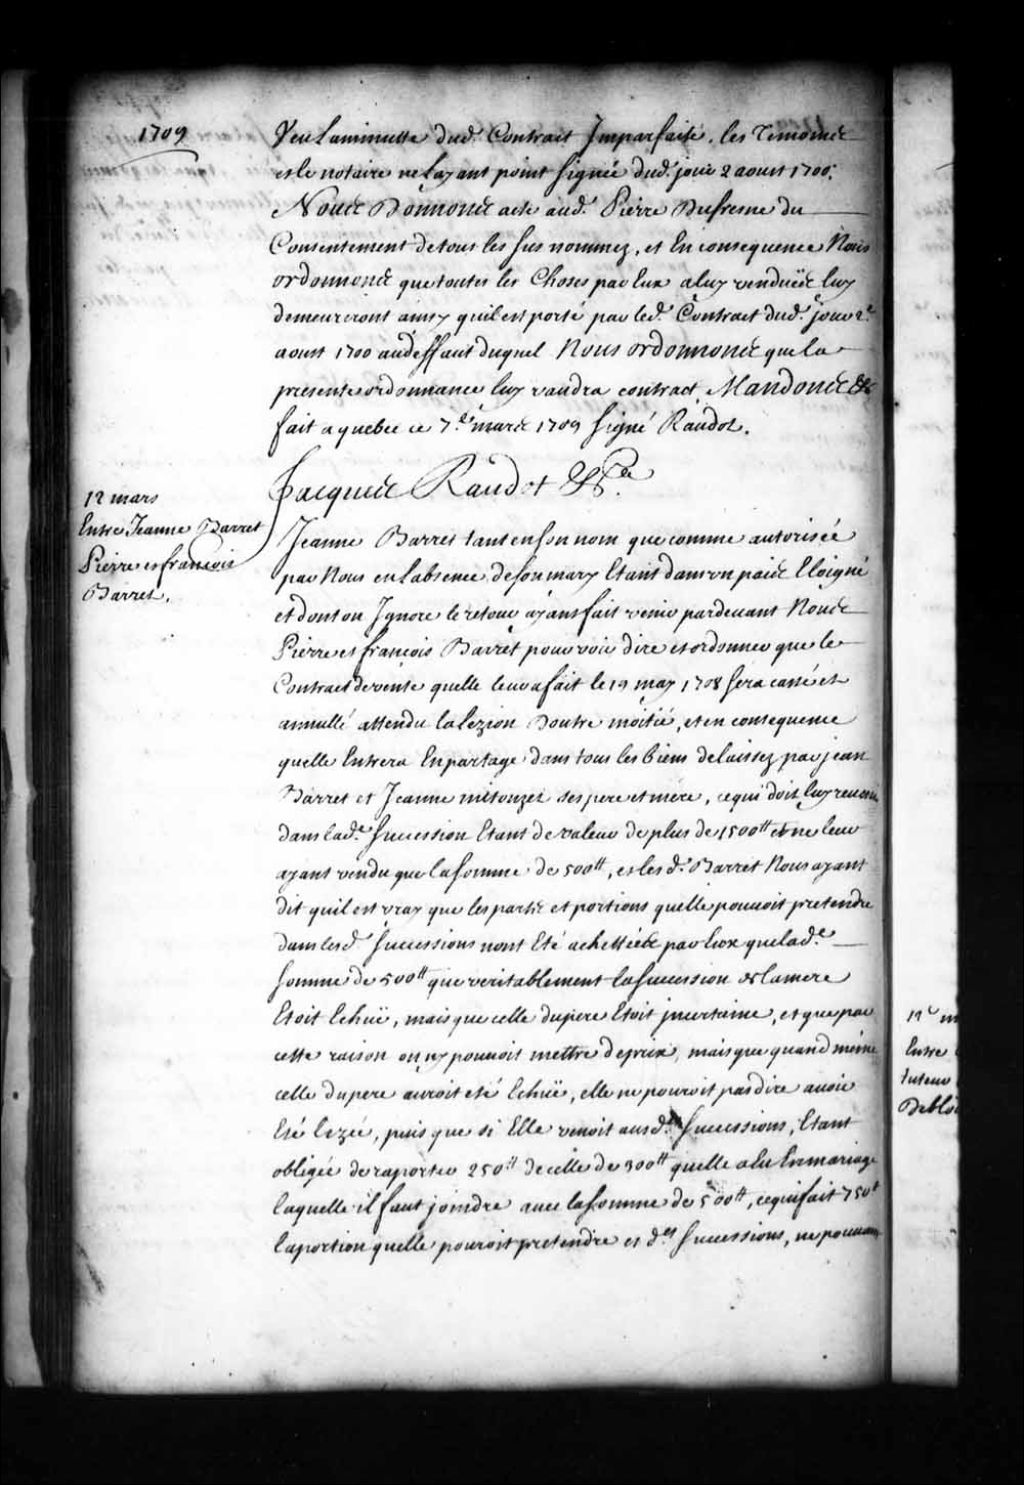 1709
Veu Laminutte dud. Contract Imparfaite, les Temoins
et le notaire nelayant point signée dud. jour 2 aoust 1700,
Nous Donnons acte aud. Pierre Dufresne du
Consentement detous les sus nommez, et En consequence Nous
ordonnons que toutes les Choses par Eux a luy venduës luy
demeureront ainsy quil est porté par led. Contract dud. jour 2e
aoust 1700 audeffaut duquel Nous ordonnons que la
presente ordonnance luy vaudra contract, Mandons &c
fait a quebec ce 7e mars 1709 signé Raudot.
12 mars
Entre Jeanne Barret
Pierre et francois
Barret.
Jacques Raudot &ca.
Jeanne Barret tant en son nom que comme autorisée
par Nous en Labsence de son mary Etant dans un païs Eloigné
et dont on Ignore le retour ayant fait venir pardevant Nous
Pierre et francois Barret pour voir dire et ordonner que le
Contract de vente quelle leur a fait le 19 may 1708 sera cassé et
annullé attendu la Lezion Doutre moitié, et en consequence
quelle Entrera En partage dans tous les biens delaissez par jean
Barret et Jeanne mitouzet ses pere et mere, ce qui doit luy revenir
dans lade. Succession Etant de valeur de plus de 1500tt et ne leur
ayant vendu que la somme de 500tt, et les d. Barret Nous ayant
dit quil est vray que les parts et portions quelle pouvoit pretendre
dans lesd. Successions nont Eté achettées par Eux que lade.
somme de 500tt que veritablement la Succession de la mere
Etoit Echuë, mais que celle du pere Etoit jncertaine, et que par
cette raison on ny pouvoit mettre de prix, mais que quand même
celle du pere auroit eté Echuë, elle ne pouroit pas dire avoir
Eté Lezée, puis que si Elle venoit ausd. Successions, Etant
obligée de raporter 250tt de celle de 300tt quelle a Eu En mariage
laquelle il faut joindre avec la somme de 500tt, ce qui fait 750tt
la portion quelle pouroit pretendre es des. Successions, ne pouvant
Entre
tuteur